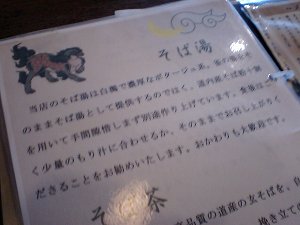 そば湯
当店のそば湯は白濁で濃厚なポタージュ系。釜の湯をそ
のままそば湯として提供するのではなく、道内産そば粉
を用いて手間隙惜しまず別途作り上げています。食後は
く少量のもり汁に合わせるか、そのままでお召し上がりいた
だきることをお勧めいたします。おかわりも大歓迎です。
そ 茶
高品質の道産の玄そばを、自
挽き立ての